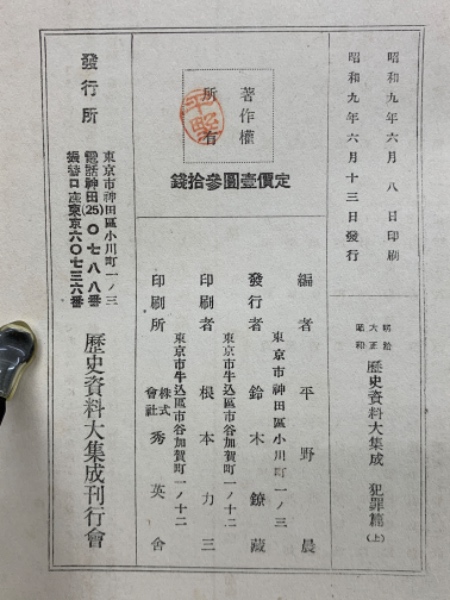 昭和九年六月八日印刷
昭和九年六月十三日發行
明治
大正
昭和
歷史資料大集成 犯罪篇(上)
著作權
所有
定價壹圓參拾錢
編者 平野晨
東京市神田區小川町一ノ三
發行者 鈴木鐐藏
東京市牛込區市谷加賀町一ノ十二
印刷者 根本力三
東京市牛込區市谷加賀町一ノ十二
印刷所 株式會社 秀英舍
發行所
東京市神田區小川町一ノ三
電話神田(25)〇七八八番
振替口座東京六〇七三六番
歷史資料大集成刊行會